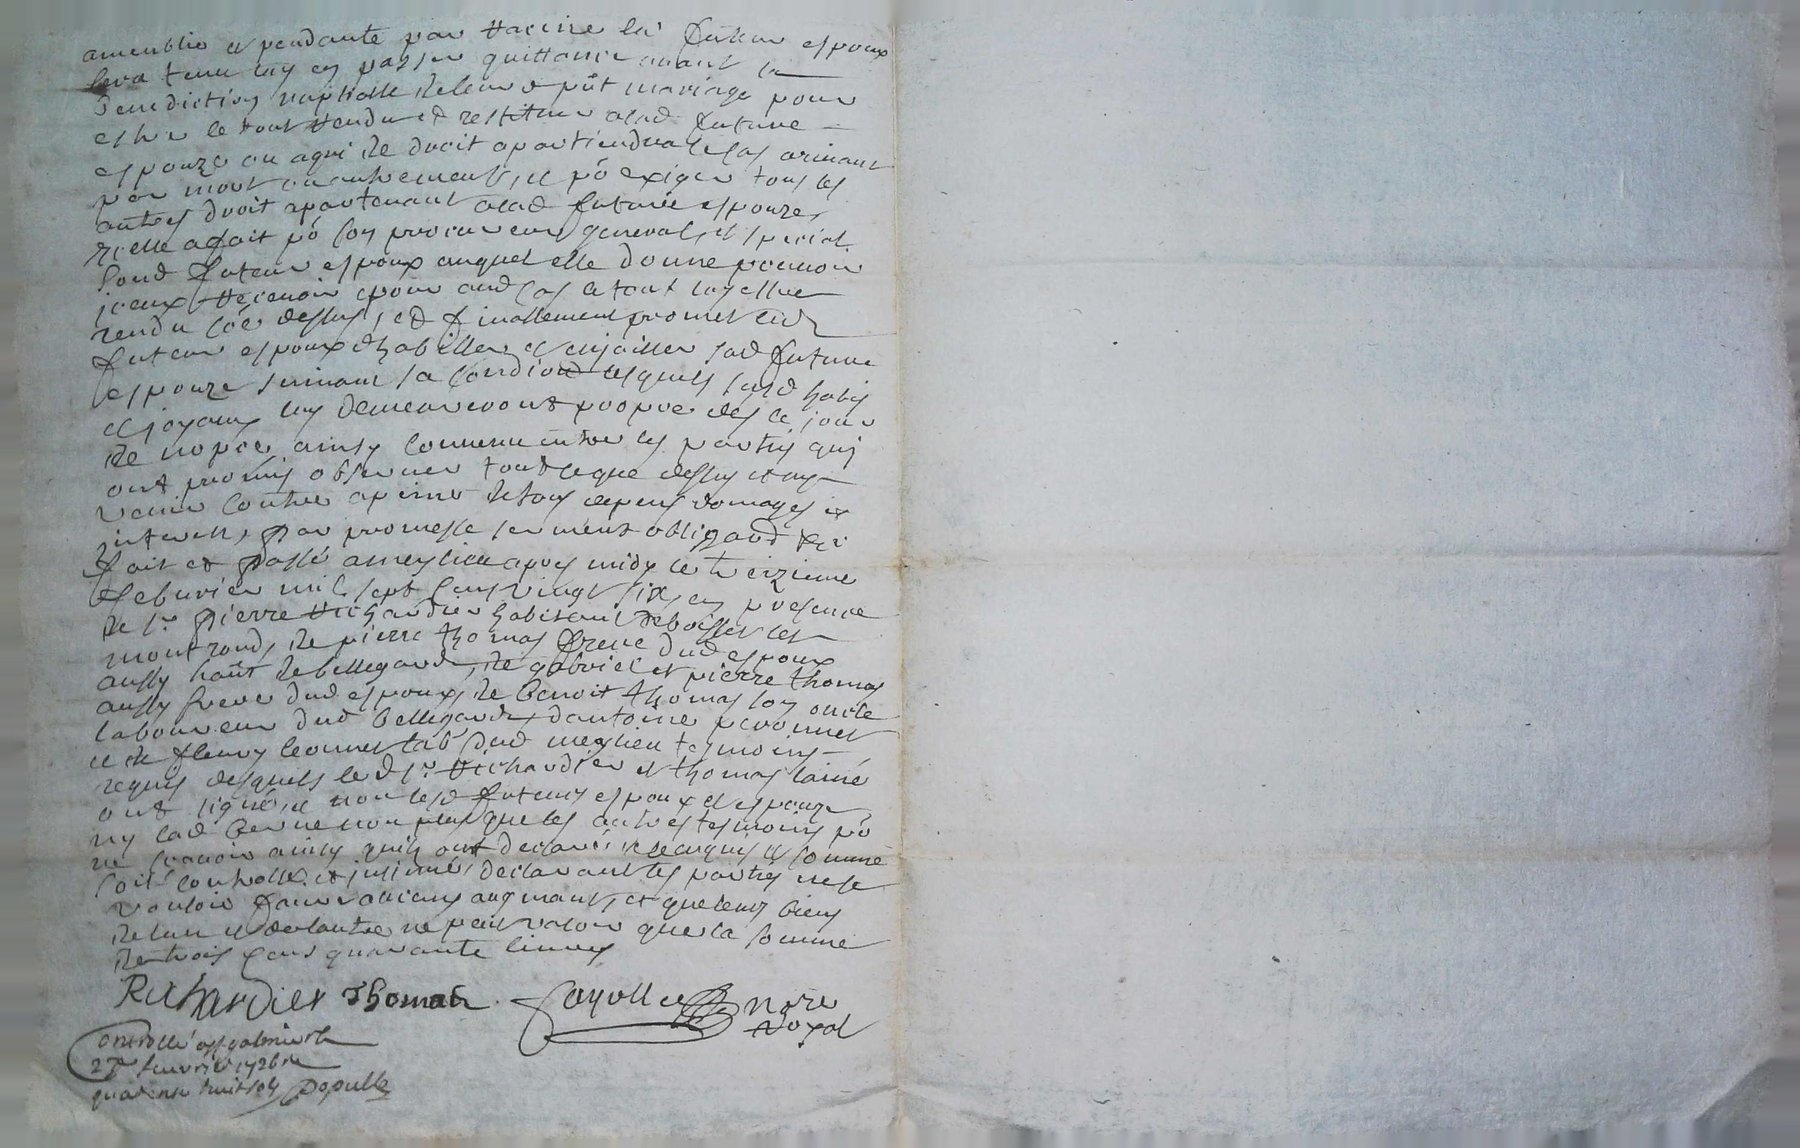 ameublie et pendante par racine led futeur espoux
sera tenu luy en passer quittance avant la
Benediction nuptialle de leur d pñt mariage pour
estre le tout rendu et restitue alad future
espouze ou a qui de droit apartiendra le cas arivant
par mort ou autrement, et pr exiger tous les
autres droit apartenant alad future espouze,
icelle a fait pr son procureur general, et special
sond futeur espoux auquel elle donne pouvoir
iceux recevoir pour aud cas le tout luy estre
rendu coe dessus, et finallement promet led
futeur espoux d'habiller et enjoiller sad future
espouze suivant sa condion lesquels susd habis
et joyaux luy demeureront propre des le jour
de nopce, ainsy convenu entre les partis qui
ont promis observer tout ce que dessus et ny
venir contre a peine de tous depens domages et
interests, par promesse serment obligaon &c
fait et passé a meylieu apres midy le treizieme
febvrier mil sept cens vingt six, en presence
de sr pierre Richardier habitant de boisset les
montrond, de pierre thomas frere dud espoux
aussy hañt de bellegarde, de gabriel et pierre thomas
aussy frere dud espoux, de benoit thomas son oncle
laboureur dud bellegarde, d'antoine peronnet
et de fleury leonnet lab dud meylieu tesmoins
requis desquels led sr Richardier et thomas lainé
ont signé, et non lesd futeurs espoux et espouze
ny lad non plus que les autres tesmoins pr
ne scavoir ainsy quils ont declaré, de ce enquis et sommé
soit controllé et insinué, declarant les parties ne se
vouloir faire aucuns augmant, et que leurs biens
de l'un et de lautre ne peut valoir que la somme
de trois cens quarante livres
Richardier Thomas Fayolle Nore
Royal
Controllé a st galmier le
27e feuvrier 1726 Re
quatorse huit sols Populle